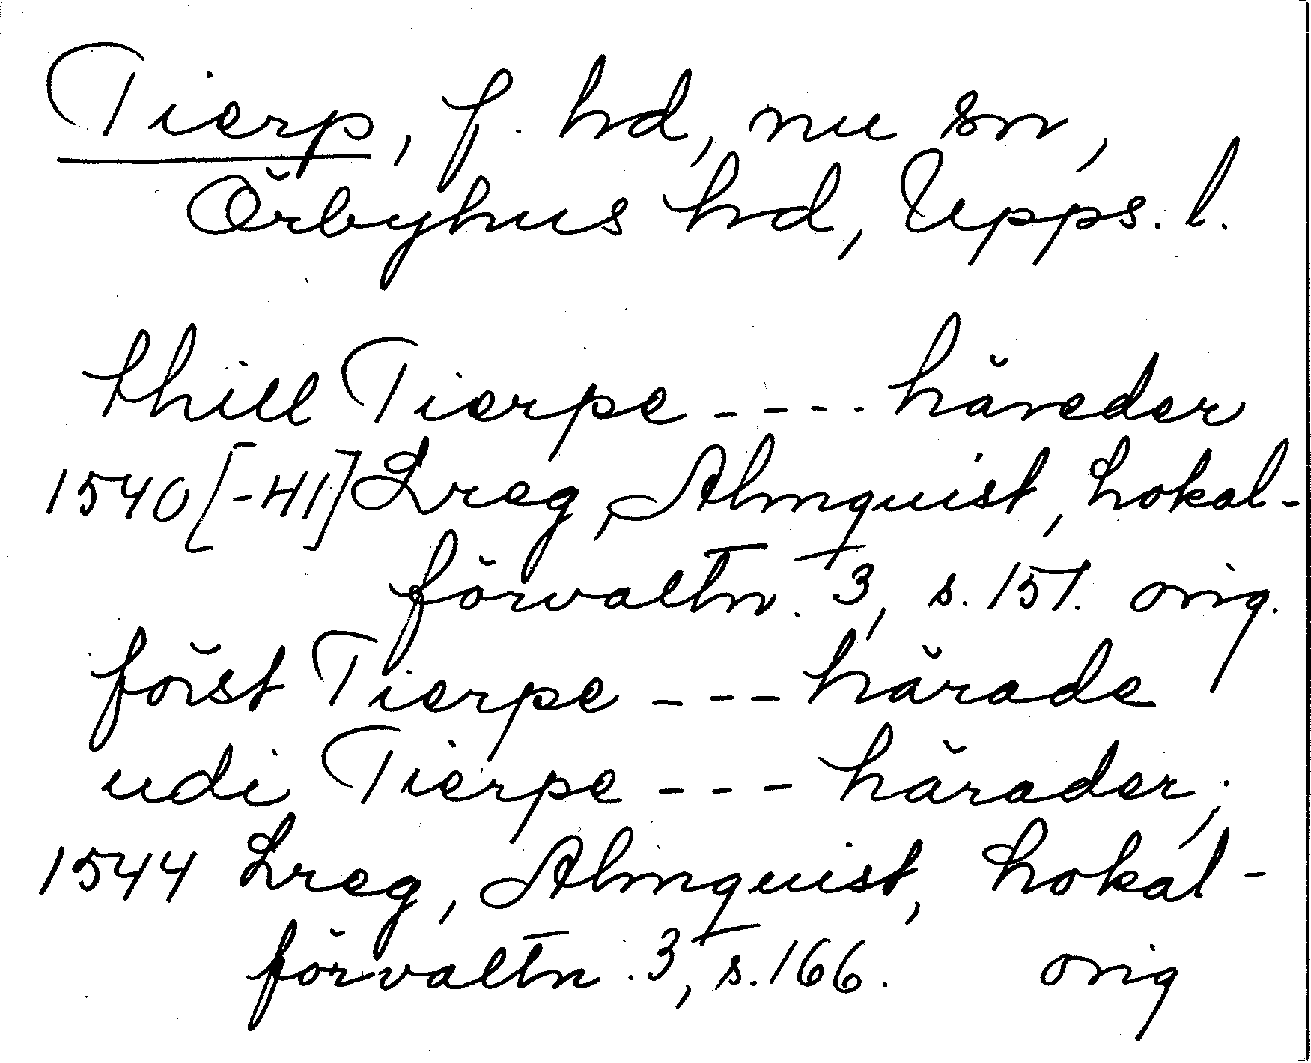 Tierp, f. hd, nu sn,
Örbyhus hd, Upps. l.
thill Tierpe ---- häreder
1540[-41] Lreg, Almquist, Lokal-
förvaltn. 3, s. 151. orig.
först Tierpe --- härade
udi Tierpe --- härader,
1544 Lreg, Almquist, Lokal-
förvaltn. 3, s. 166. orig